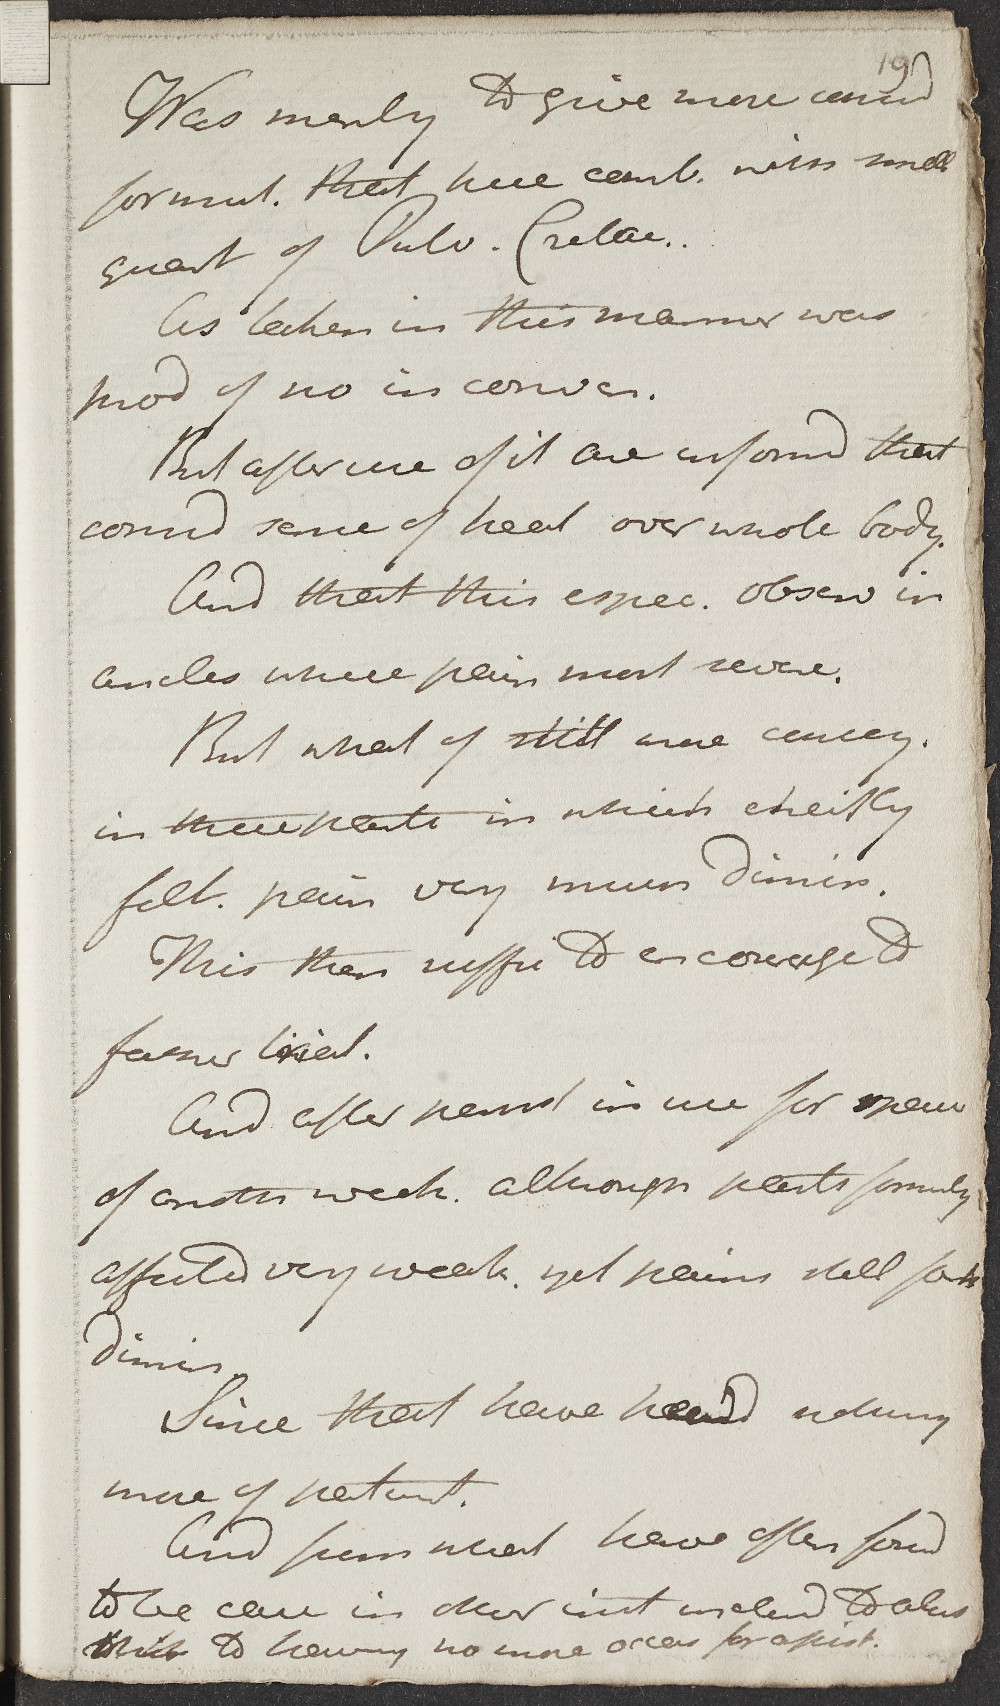 197
Was merly to give more cond
formul. that here comb. with small
quant of Pulv. Cretae..
As taken in this manner was
prod of no in conven.
But after use of it are inform'd that
cons'd sense of heat over whole body.
And that this espec. observ in
ancles where pain most severe.
But what of still more consey.
in these parts in which cheifly
felt. pain very much dimin.
This then suffic to encourage to
farther trial.
And after persist in use for space
of another week. although parts formerly
affected very weak. yet pains still farth
dimin.
Since that have heard nothing
more of patient.
And from what have often found
to be case in other inst inclined to ascribe
this to having no more occas for assist.